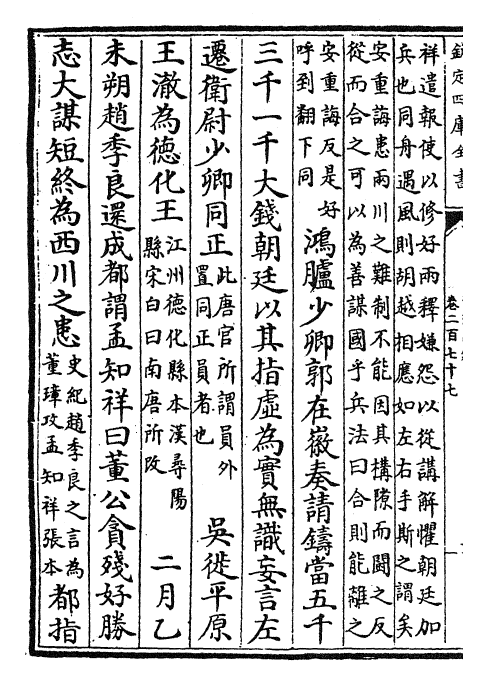 欽定四庫全書
卷二百七十七
祥遣報使以修好兩釋嫌怨以從講解懼朝廷加
兵也同舟遇風則胡越相應如左右手斯之謂矣
安重誨患兩川之難制不能因其構隙而鬭之反
從而合之可以為善謀國乎兵法曰合則能離之
安重誨反是好
呼到翻下同
鴻臚少卿郭在徽奏請鑄當五千
三千一千大錢朝廷以其指虛為實無識妄言左
遷衛尉少卿同正
此唐官所謂員外
置同正員者也
吳徙平原
王澈為德化王
江州德化縣本漢尋陽
縣宋白曰南唐所改
二月乙
未朔趙季良還成都謂孟知祥曰董公貪殘好勝
志大謀短終為西川之患
史紀趙季良之言為
董璋攻孟知祥張本
都指